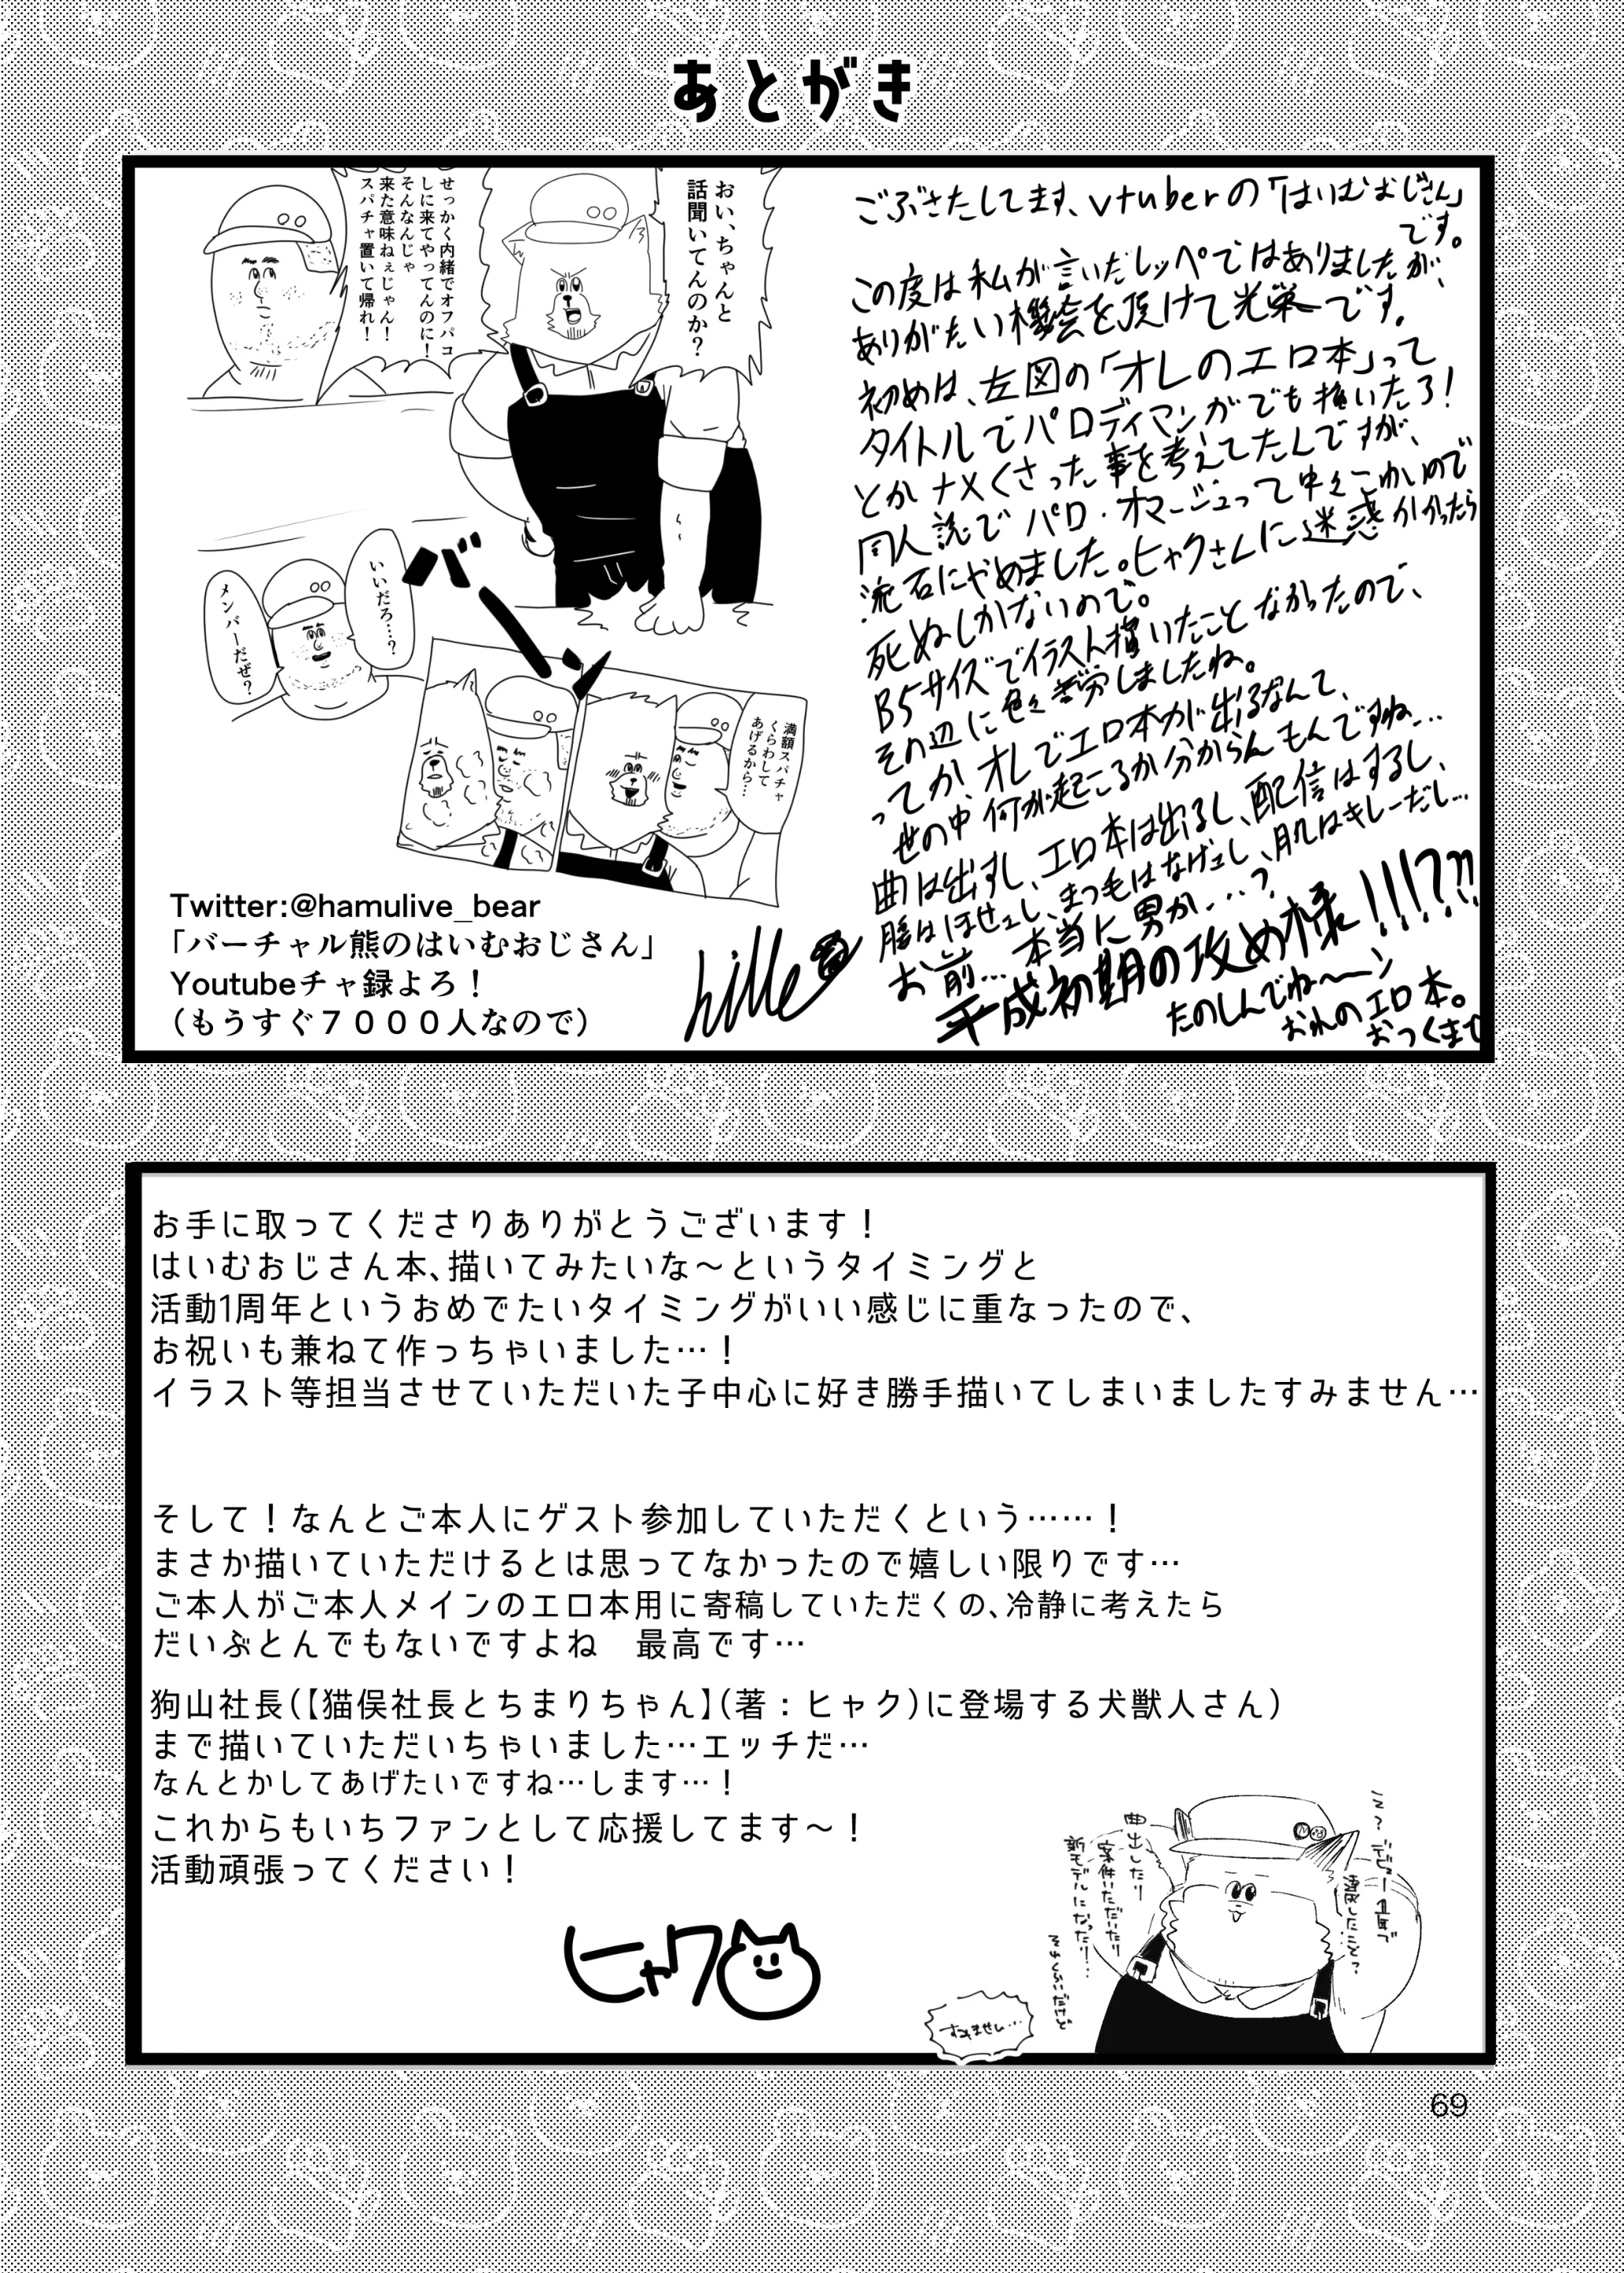 あとがき
ごぶさたしてます、vtuberの「はいむおじさん」
です。
この度は私が言いだしッペではありましたが、
ありがたい機会を頂けて光栄です。
初めは、左図の「オレのエロ本」って
タイトルでパロディマンガでも描いたろ!
とかナメくさった事を考えてたんですが、
同人誌でパロ・オマージュって中々こわいので
流石にやめました。ヒャクさんに迷惑かかったら
死ぬしかないので。
B5サイズでイラスト描いたことなかったので、
その辺に色々苦労しましたね。
ってか、オレでエロ本が出るなんて、
世の中何が起こるか分からんもんですね…
曲は出すし、エロ本は出るし、配信はするし、
腰はほせェし、まつ毛はなげェし、肌はキレーだし…
お前…本当に男か…?
平成初期の攻め様!!!??!
たのしんでね〜ン
おれのエロ本。
おいちゃんと
話聞いてんのか?
せっかく内緒でオフパコ
しに来てやってんのに!
そんなんじゃ
来た意味ねぇじゃん!
スパチャ置いて帰れ!
いいだろ…?
メンバーだぜ?
バンッ
満額スパチャ
くらわして
あげるから…
Twitter:@hamulive_bear
「バーチャル熊のはいむおじさん」
Youtubeチャ録よろ！
（もうすぐ７０００人なので）
お手に取ってくださりありがとうございます！
はいむおじさん本、描いてみたいな〜というタイミングと
活動1周年というおめでたいタイミングがいい感じに重なったので、
お祝いも兼ねて作っちゃいました…！
イラスト等担当させていただいた子中心に好き勝手描いてしまいましたすみません…
そして！なんとご本人にゲスト参加していただくという……！
まさか描いていただけるとは思ってなかったので嬉しい限りです…
ご本人がご本人メインのエロ本用に寄稿していただくの、冷静に考えたら
だいぶとんでもないですよね　最高です…
狗山社長(【猫俣社長とちまりちゃん】(著：ヒャク)に登場する犬獣人さん)
まで描いていただいちゃいました…エッチだ…
なんとかしてあげたいですね…します…！
これからもいちファンとして応援してます〜！
活動頑張ってください！
ヒャク
え?デビュー1年で
達成したこと?
曲出したり
案件いただいたり
新モデルになったり…
それくらいだけど
すみません…
69